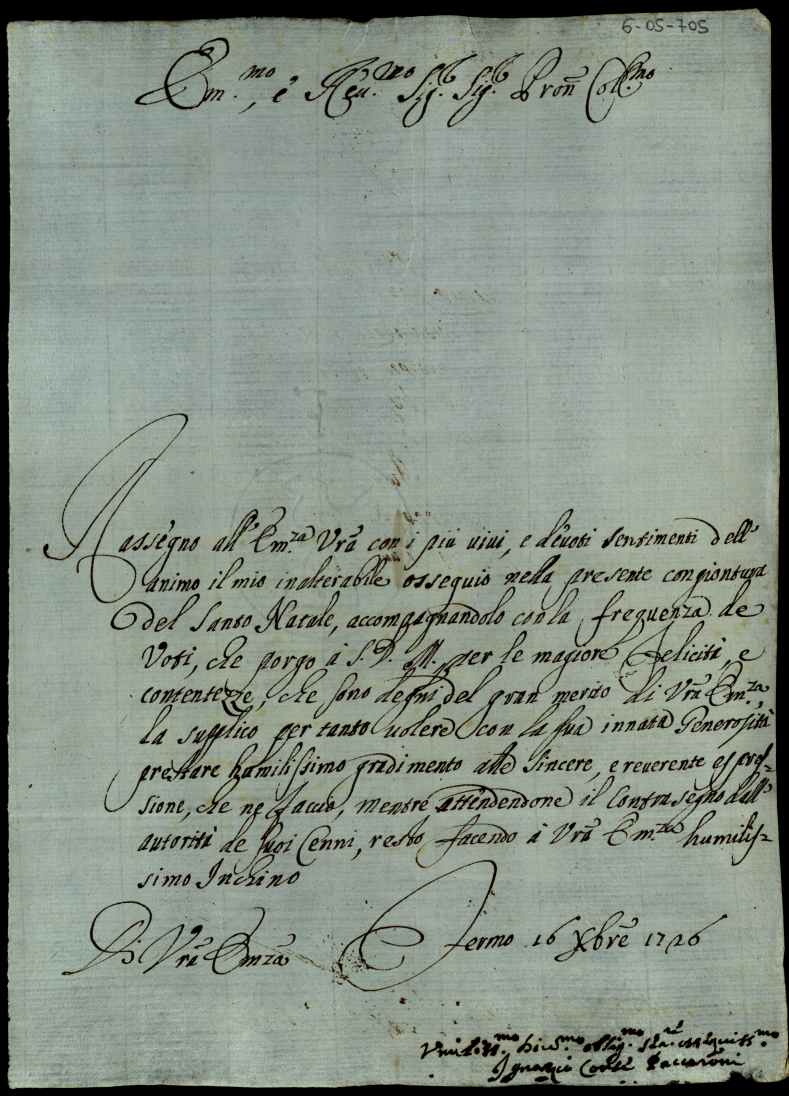 6-05-705
Em.mo, e Reu.mo Sig.r Sig.r Pron Col.mo
Rassegno all' Em.za Vra con i più uiui, e deuoti sentimenti dell'
animo il mio inalterabile ossequio nella presente congiontura
del Santo Natale, accompagnandolo con la frequenza de
Voti, che porgo à S. D. M. per le magiori felicità, e
contentezze, che sono degni del gran merito di Vra Em.za,
la supplico per tanto uolere con la sua innata Generosità
prestare humilissimo gradimento alle sincere, e reuerente espres-
sione, che ne faccio, mentre attendendone il Contrasegno dall'
autorità de suoi Cenni, resto facendo à Vra Em.za humilis-
simo Inchino
Di Vra Emza Fermo 16 Xbre 1726
Ignazio Conte Paccaroni